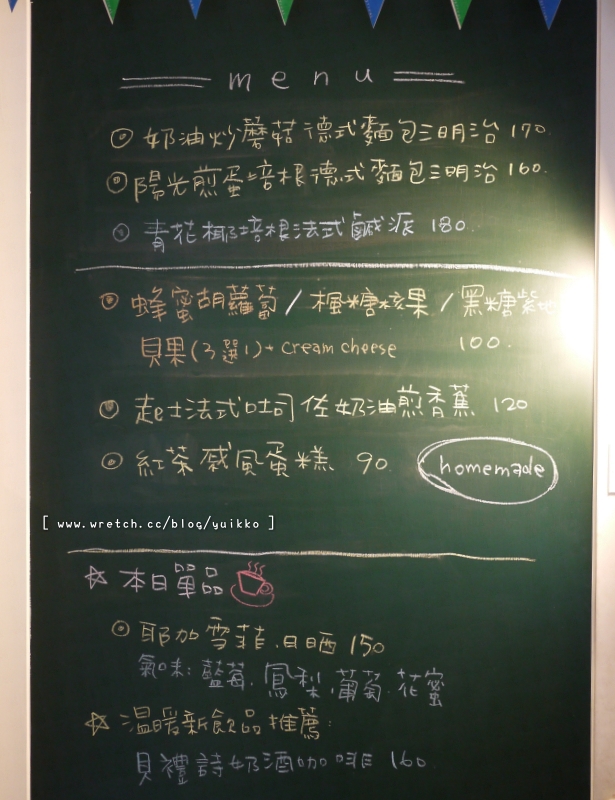 menu
奶油炒蘑菇德式麵包三明治 170.
陽光煎蛋培根德式麵包三明治 160.
青花椰培根法式鹹派 180.
蜂蜜胡蘿蔔/楓糖核果/黑糖紫地
貝果(3選1)+ cream cheese 100.
起士法式吐司佐奶油煎香蕉 120
紅茶戚風蛋糕 90. homemade
[ www.wretch.cc/blog/yuikko ]
☆ 本日單品
耶加雪菲.日晒 150
氣味:藍莓.鳳梨.葡萄.花蜜
☆ 溫暖新飲品推薦:
貝禮詩奶酒咖啡 160.